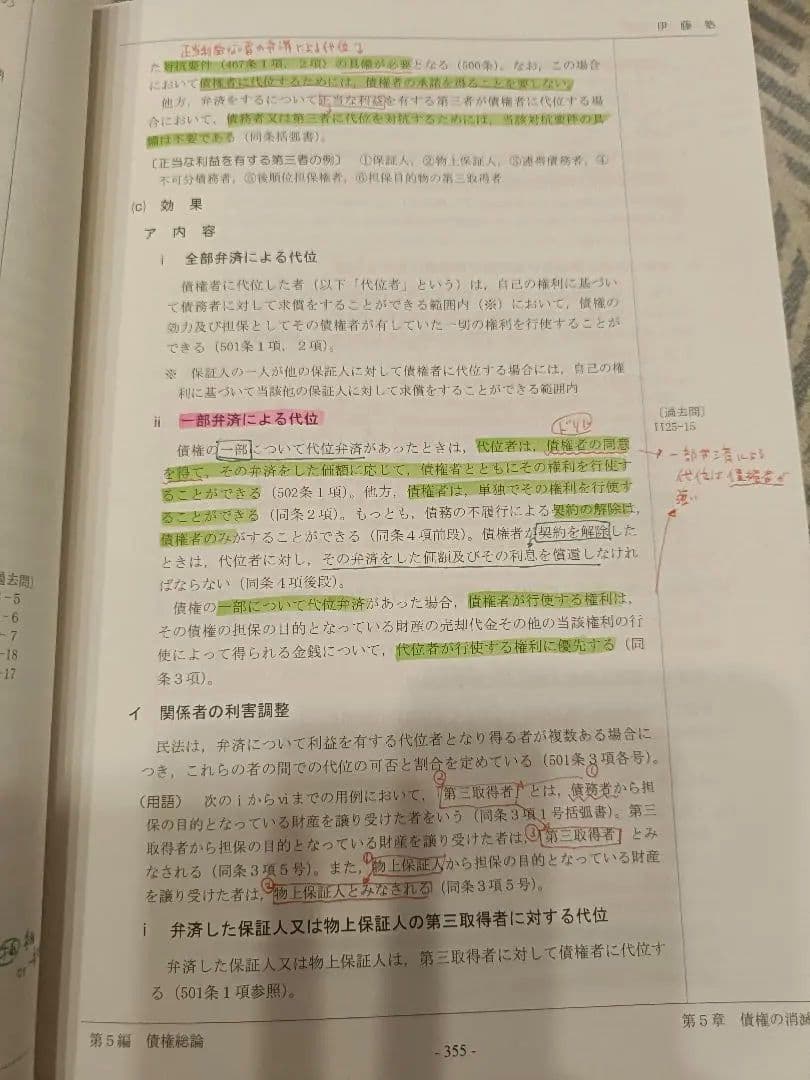 伊藤塾
正当利益ない者の弁済による代位
た対抗要件（467条1項，2項）の具備が必要となる（500条）。なお，この場合
において債権者に代位するためには，債権者の承諾を得ることを要しない。
他方，弁済をするについて正当な利益を有する第三者が債権者に代位する場
合において，債務者又は第三者に代位を対抗するためには，当該対抗要件の具
備は不要である（同条括弧書）。
〔正当な利益を有する第三者の例〕 ①保証人，②物上保証人，③連帯債務者，④
不可分債務者，⑤後順位担保権者，⑥担保目的物の第三取得者
(c) 効果
ア 内容
ⅰ 全部弁済による代位
債権者に代位した者（以下「代位者」という）は，自己の権利に基づい
て債務者に対して求償をすることができる範囲内（※）において，債権の
効力及び担保としてその債権者が有していた一切の権利を行使することが
できる（501条1項，2項）。
※ 保証人の一人が他の保証人に対して債権者に代位する場合には，自己の権
利に基づいて当該他の保証人に対して求償をすることができる範囲内
ⅱ 一部弁済による代位
〔過去問〕
H25-15
債権の一部について代位弁済があったときは，代位者は，債権者の同意
を得て，その弁済をした価額に応じて，債権者とともにその権利を行使す
ることができる（502条1項）。他方，債権者は，単独でその権利を行使す
ることができる（同条2項）。もっとも，債務の不履行による契約の解除は，
債権者のみがすることができる（同条4項前段）。債権者が契約を解除した
ときは，代位者に対し，その弁済をした価額及びその利息を償還しなけれ
ばならない（同条4項後段）。
一部弁済による
代位は債権者が
強い
債権の一部について代位弁済があった場合，債権者が行使する権利は，
その債権の担保の目的となっている財産の売却代金その他の当該権利の行
使によって得られる金銭について，代位者が行使する権利に優先する（同
条3項）。
過去問〕
-5
-6
-7
-18
-17
イ 関係者の利害調整
民法は，弁済について利益を有する代位者となり得る者が複数ある場合に
つき，これらの者の間での代位の可否と割合を定めている（501条3項各号）。
①
②
（用語） 次のⅰからⅵまでの用例において，第三取得者とは，債務者から担
保の目的となっている財産を譲り受けた者をいう（同条3項1号括弧書）。第三
取得者から担保の目的となっている財産を譲り受けた者は，③第三取得者とみ
なされる（同条3項5号）。また，①物上保証人から担保の目的となっている財産
を譲り受けた者は，②物上保証人とみなされる（同条3項5号）。
ⅰ 弁済した保証人又は物上保証人の第三取得者に対する代位
弁済した保証人又は物上保証人は，第三取得者に対して債権者に代位す
る（501条1項参照）。
第5編 債権総論
- 355 -
第5章 債権の消滅